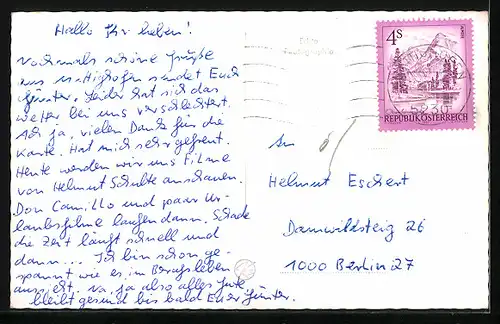 Hallo Ihr lieben!
Nochmals schöne Grüße
aus Mattighofen sendet Euch
Günter. Leider hat sich das
Wetter bei uns verschlechtert.
Ach ja, vielen Dank für die
Karte. Hat mich sehr gefreut.
Heute werden wir uns Filme
von Helmut Schulte anschauen.
Don Camillo und paar Ur-
laubsfilme laufen dann. Schade
die Zeit läuft schnell und
dann... Ich bin schon ge-
spannt wie es im Berufsleben
aussieht. Na ja also alles Gute
bleibt gesund bis bald Euer Günter.
4S
REPUBLIK ÖSTERREICH
An
Helmut Eschert
Damwildsteig 26
1000 Berlin 27